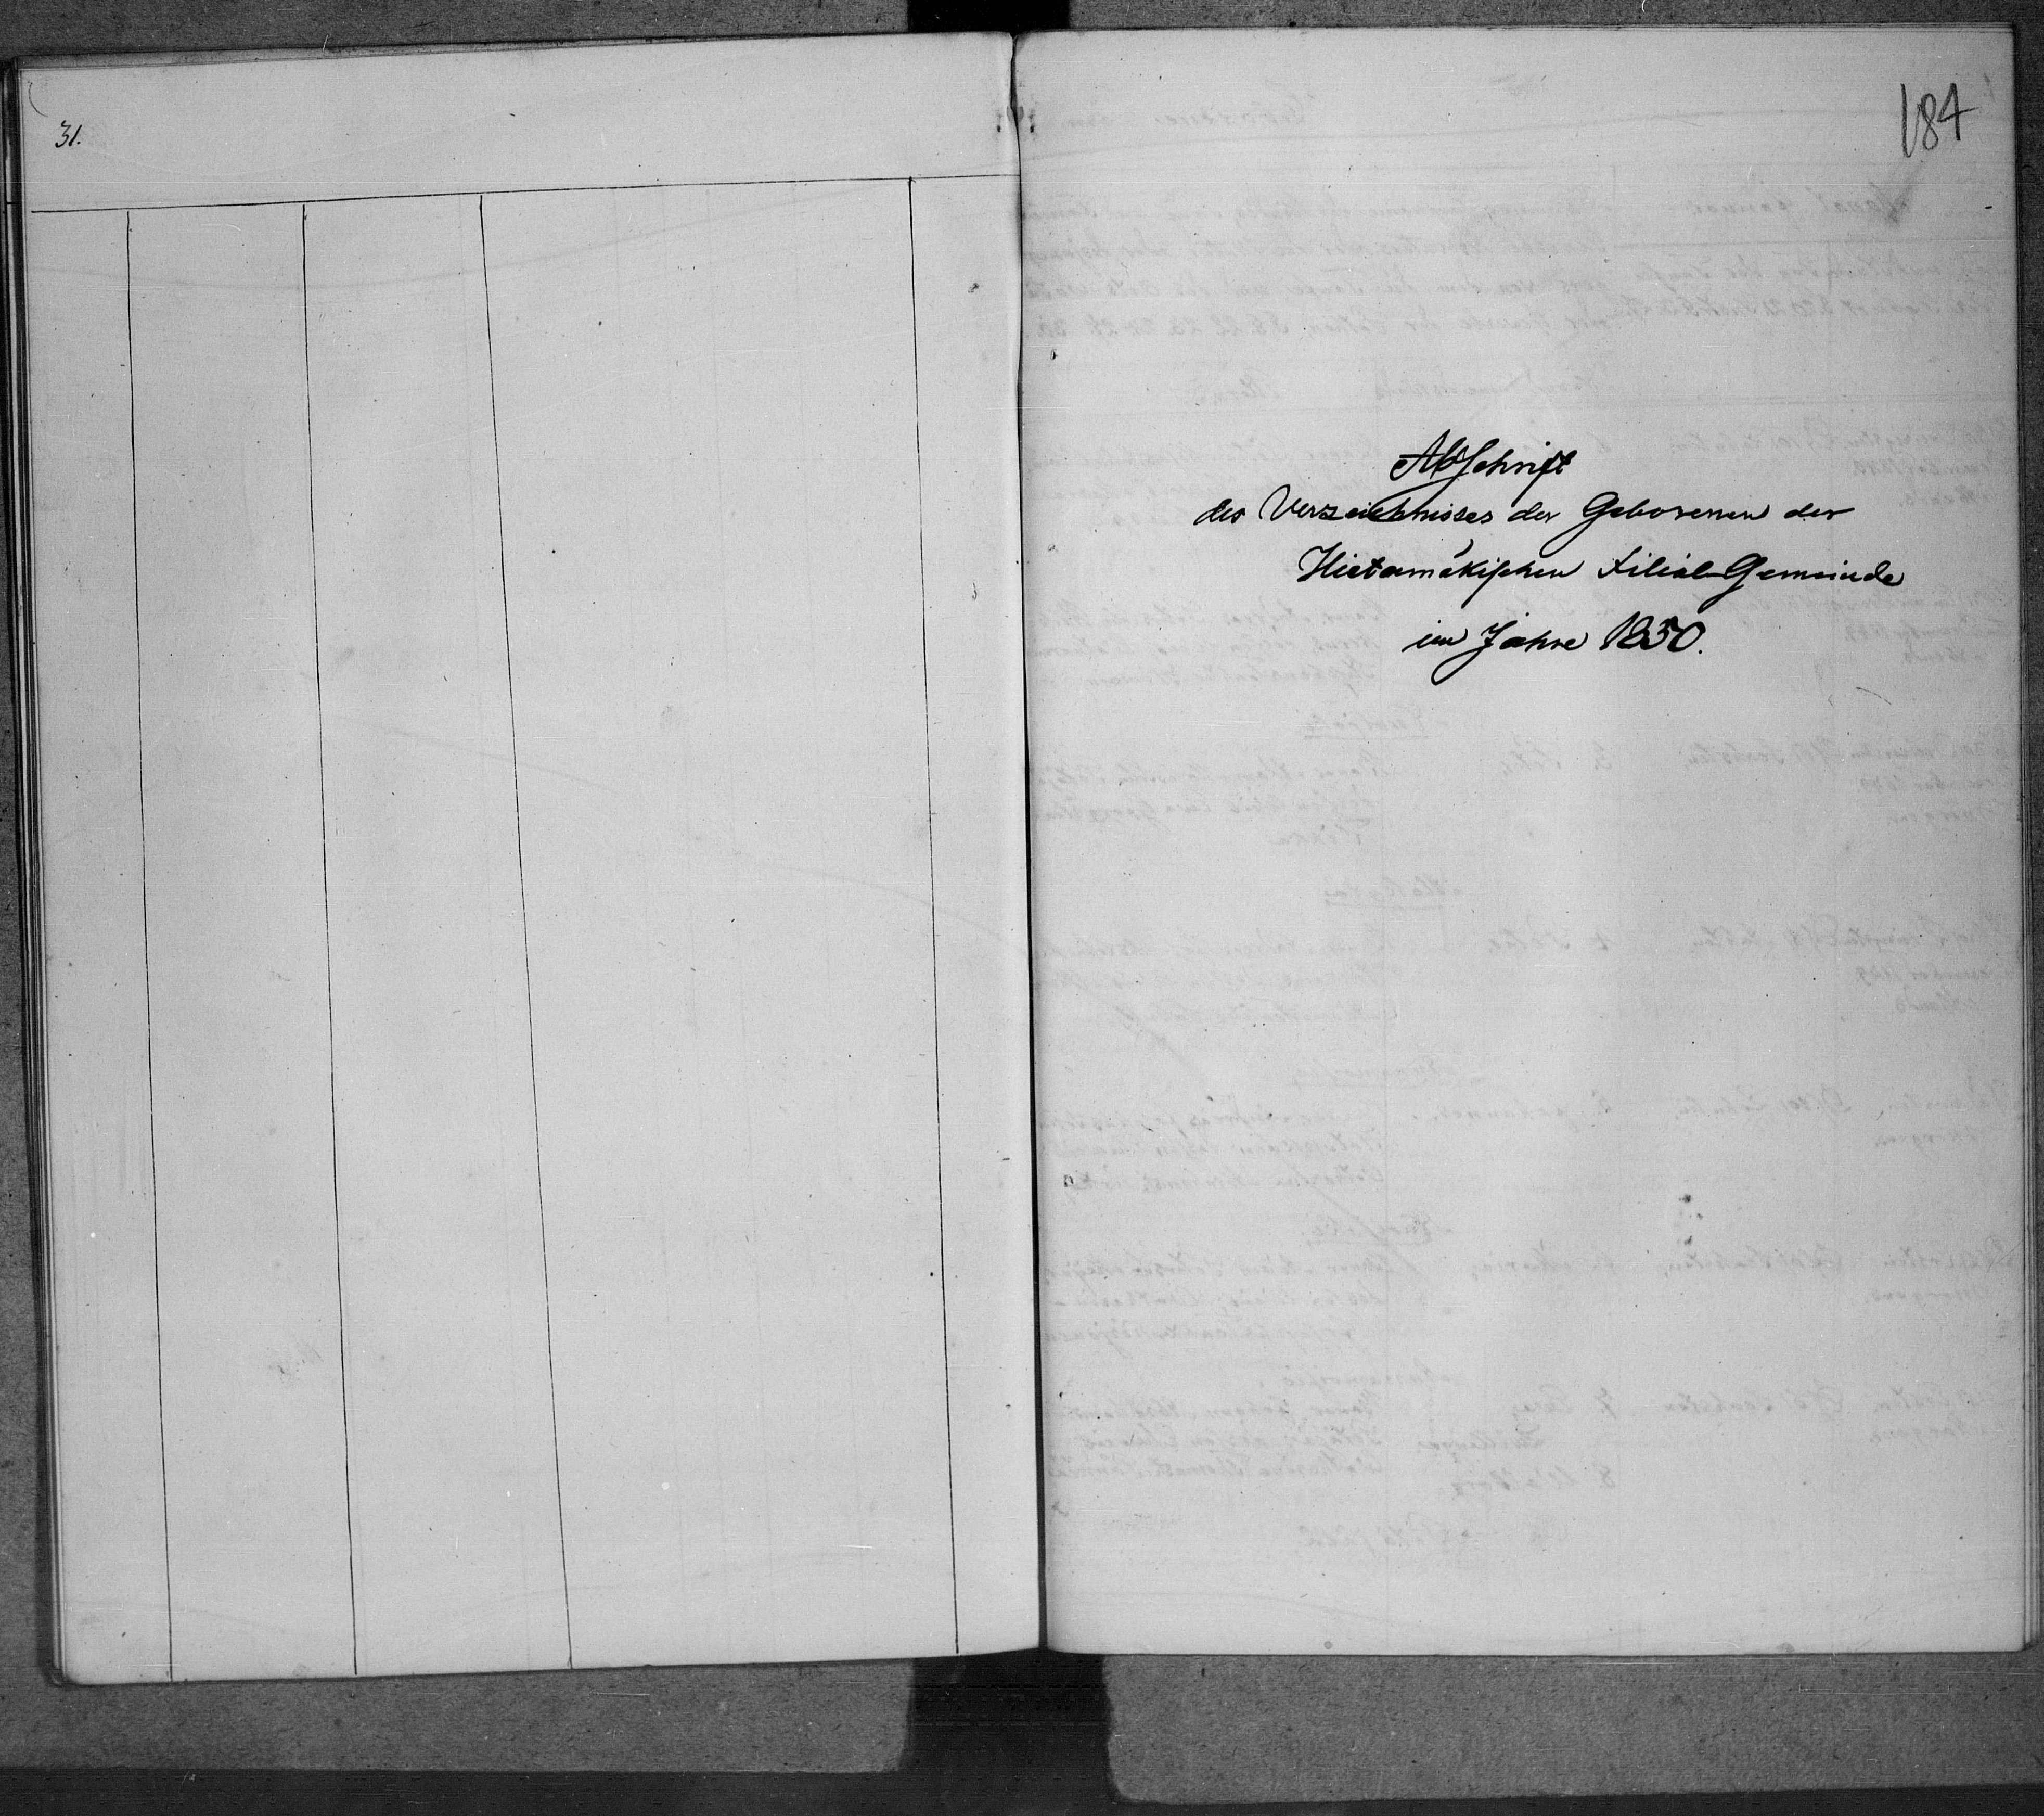 31.
184
Abschrift
des Verzeichnisses der Geborenen der
Hietamäkischen Filial-Gemeinde
im Jahre 1850.